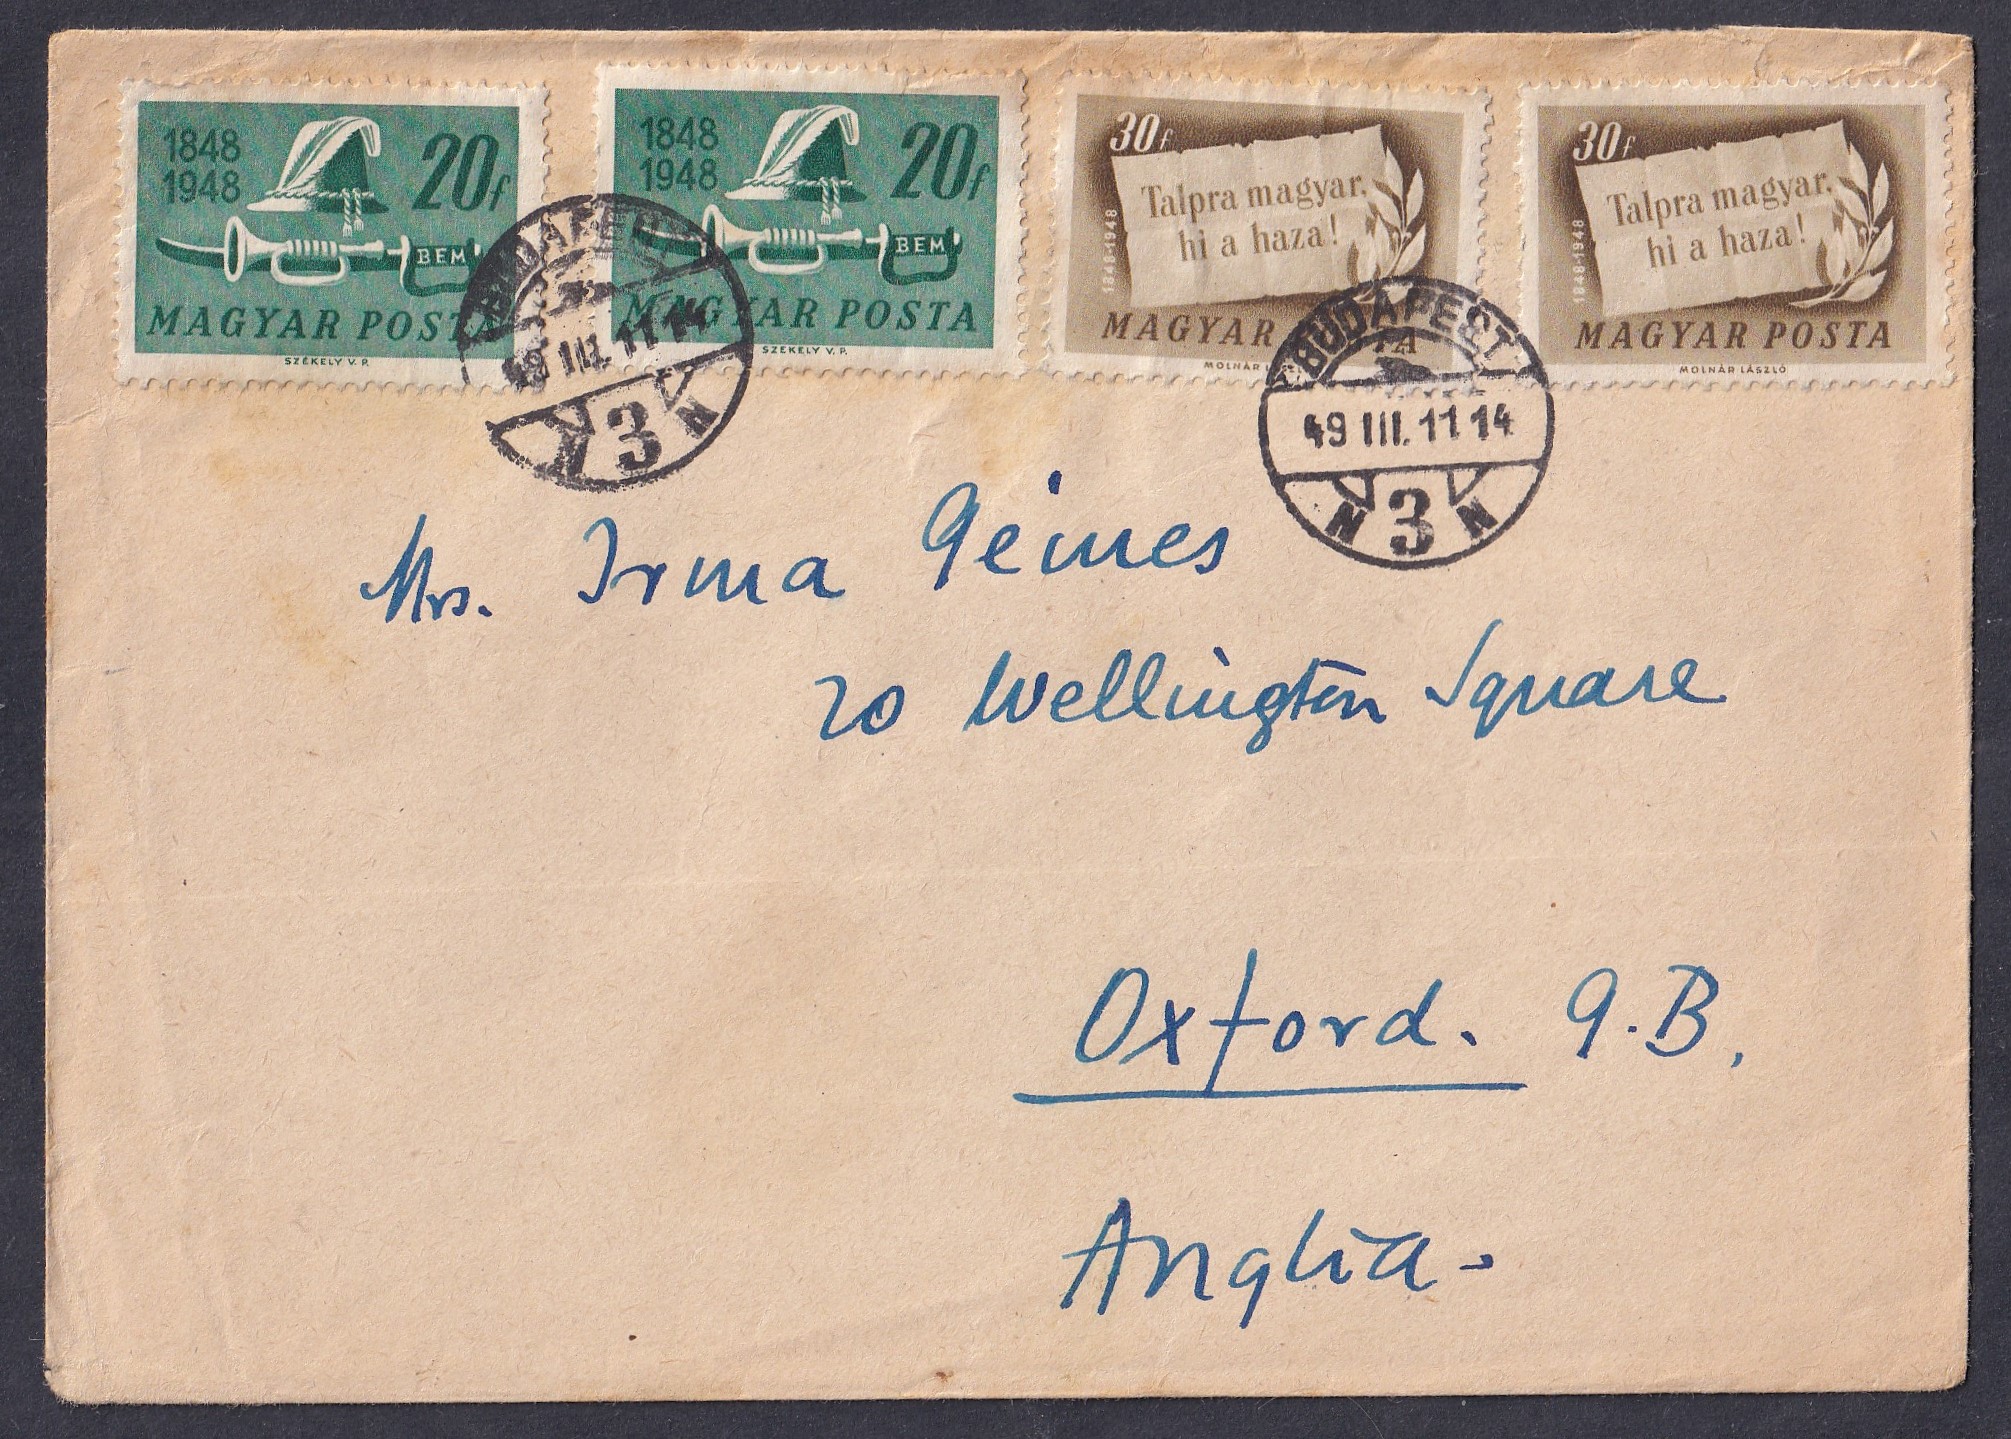 1848
1948
20f
BEM
MAGYAR POSTA
SZÉKELY V. P.
1848
1948
20f
BEM
MAGYAR POSTA
SZÉKELY V. P.
30f
Talpra magyar,
hi a haza!
1848-1948
MAGYAR
MOLNÁR
30f
Talpra magyar,
hi a haza!
1848-1948
MAGYAR POSTA
MOLNÁR LÁSZLÓ
BUDAPEST
49 III. 11 14
3
BUDAPEST
49 III. 11 14
N 3 N
Mrs. Irma Geimes
20 Wellington Square
Oxford. G.B.
Anglia.